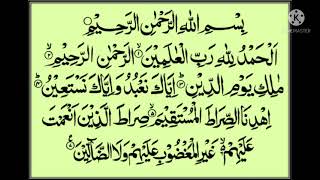 بِسْمِ اللهِ الرَّحْمٰنِ الرَّحِيْمِ
اَلْحَمْدُ لِلّٰهِ رَبِّ الْعٰلَمِيْنَ ۙ﴿۱﴾ الرَّحْمٰنِ الرَّحِيْمِ ۙ﴿۲﴾
مٰلِكِ يَوْمِ الدِّيْنِ ؕ﴿۳﴾ اِيَّاكَ نَعْبُدُ وَاِيَّاكَ نَسْتَعِيْنُ ؕ﴿۴﴾
اِهْدِنَا الصِّرَاطَ الْمُسْتَقِيْمَ ۙ﴿۵﴾ صِرَاطَ الَّذِيْنَ اَنْعَمْتَ
عَلَيْهِمْ ۙ﴿۶﴾ غَيْرِ الْمَغْضُوْبِ عَلَيْهِمْ وَلَا الضَّآلِّيْنَ ﴿۷﴾
KINEMASTER